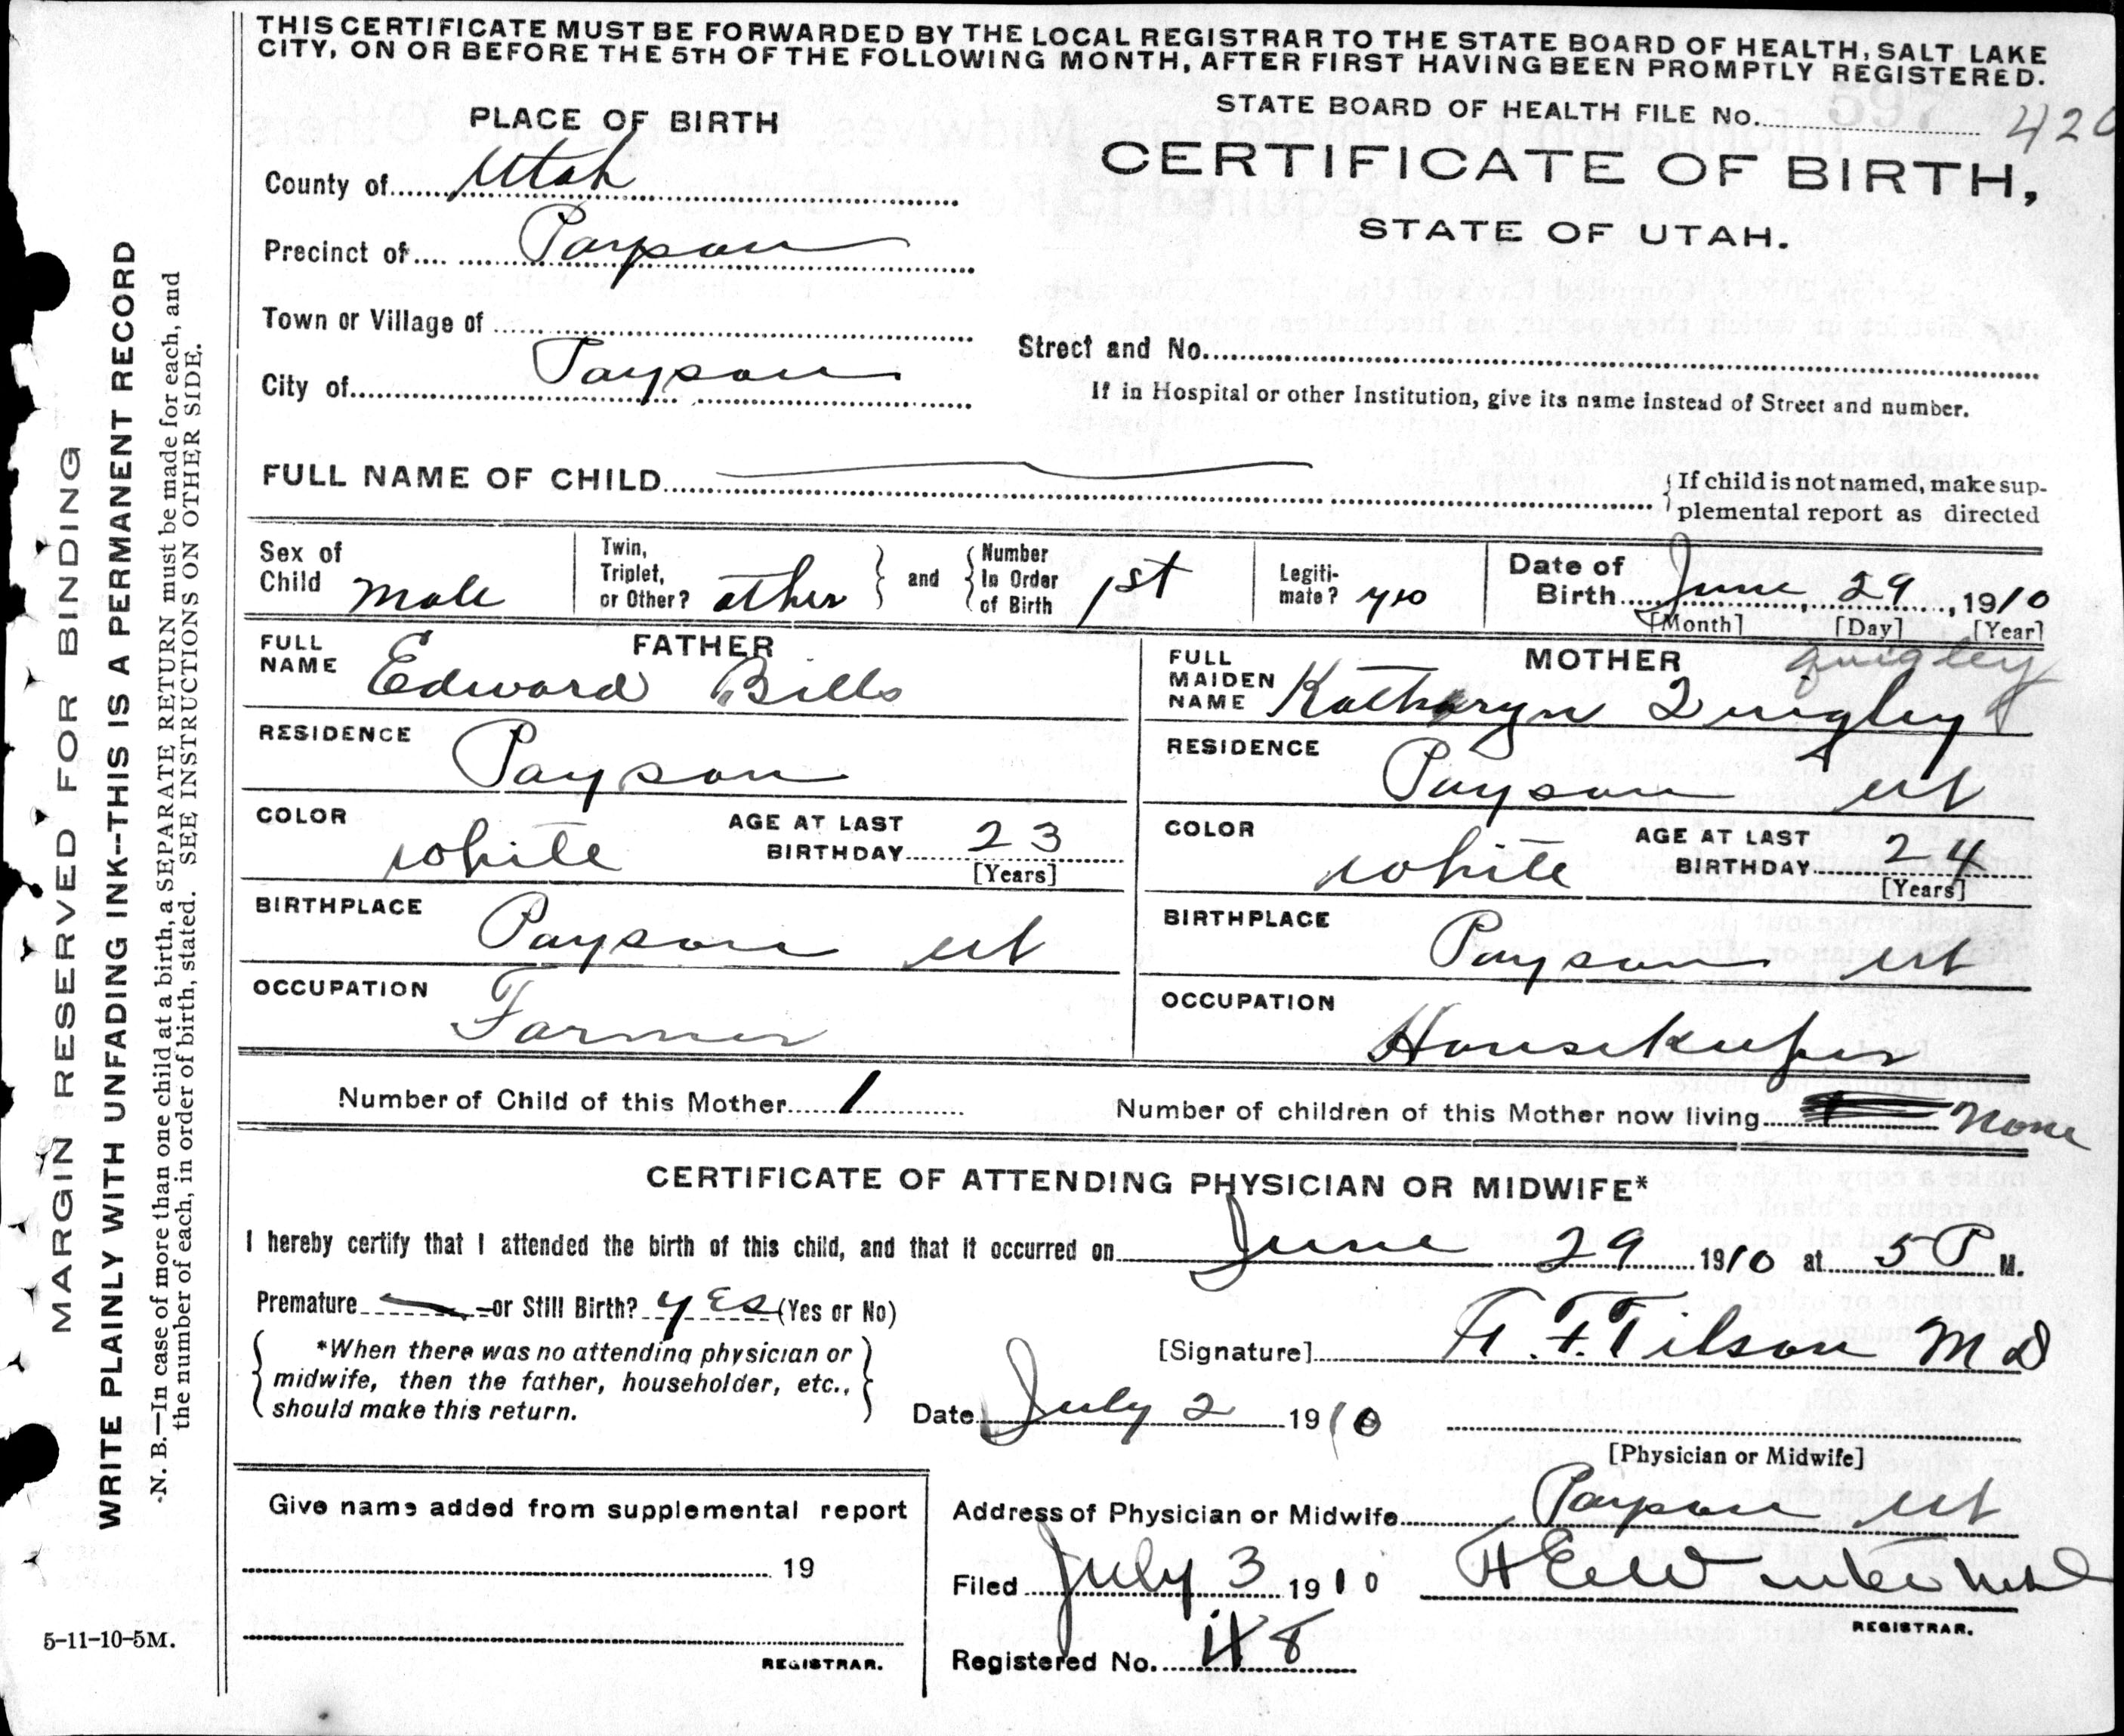 THIS CERTIFICATE MUST BE FORWARDED BY THE LOCAL REGISTRAR TO THE STATE BOARD OF HEALTH, SALT LAKE
CITY, ON OR BEFORE THE 5TH OF THE FOLLOWING MONTH, AFTER FIRST HAVING BEEN PROMPTLY REGISTERED.
PLACE OF BIRTH
STATE BOARD OF HEALTH FILE No. 597 420
County of Utah
CERTIFICATE OF BIRTH,
STATE OF UTAH.
Precinct of Payson
Town or Village of
Street and No.
City of Payson
If in Hospital or other Institution, give its name instead of Street and number.
FULL NAME OF CHILD
If child is not named, make sup-
plemental report as directed
Sex of Child male
Twin, Triplet, or Other? other
and Number In Order of Birth 1st
Legiti-mate? yes
Date of Birth June 29, 1910
[Month] [Day] [Year]
FATHER
FULL NAME Edward Bills
RESIDENCE Payson
COLOR white AGE AT LAST BIRTHDAY 23
[Years]
BIRTHPLACE Payson Ut
OCCUPATION Farmer
MOTHER quigley
FULL MAIDEN NAME Katharyn Quigley
RESIDENCE Payson Ut
COLOR white AGE AT LAST BIRTHDAY 24
[Years]
BIRTHPLACE Payson Ut
OCCUPATION Housekeeper
Number of Child of this Mother 1
Number of children of this Mother now living None
CERTIFICATE OF ATTENDING PHYSICIAN OR MIDWIFE*
I hereby certify that I attended the birth of this child, and that it occurred on June 29 1910 at 5 P M.
Premature or Still Birth? yes (Yes or No)
*When there was no attending physician or
midwife, then the father, householder, etc.,
should make this return.
[Signature] Tilson MD
Date July 2 1910
[Physician or Midwife]
Give name added from supplemental report
19
REGISTRAR.
Address of Physician or Midwife Payson Ut
Filed July 3 1910
REGISTRAR.
Registered No. 48
5-11-10-5M.
MARGIN RESERVED FOR BINDING
WRITE PLAINLY WITH UNFADING INK--THIS IS A PERMANENT RECORD
N. B.—In case of more than one child at a birth, a SEPARATE RETURN must be made for each, and
the number of each, in order of birth, stated. SEE INSTRUCTIONS ON OTHER SIDE.